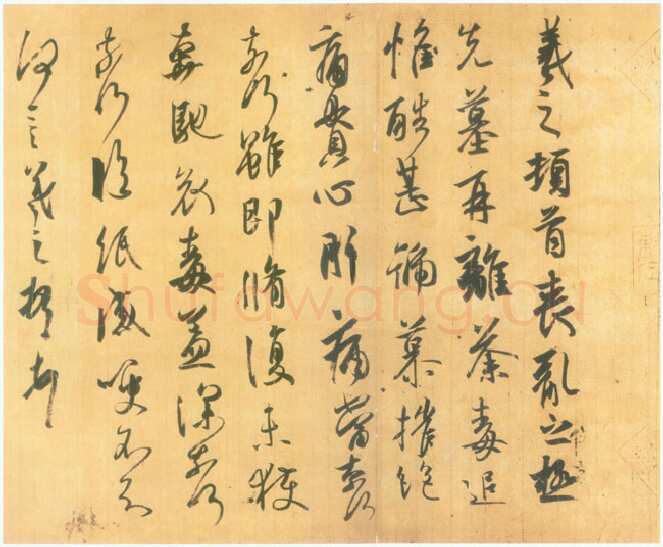 羲之頓首喪亂之極
先墓再離荼毒追
惟酷甚號慕摧絕
痛貫心肝痛當柰何
柰何雖即脩復未獲
奔馳哀毒益深柰何
柰何臨紙感哽不知
何言羲之頓首頓首
Shufawang.cn